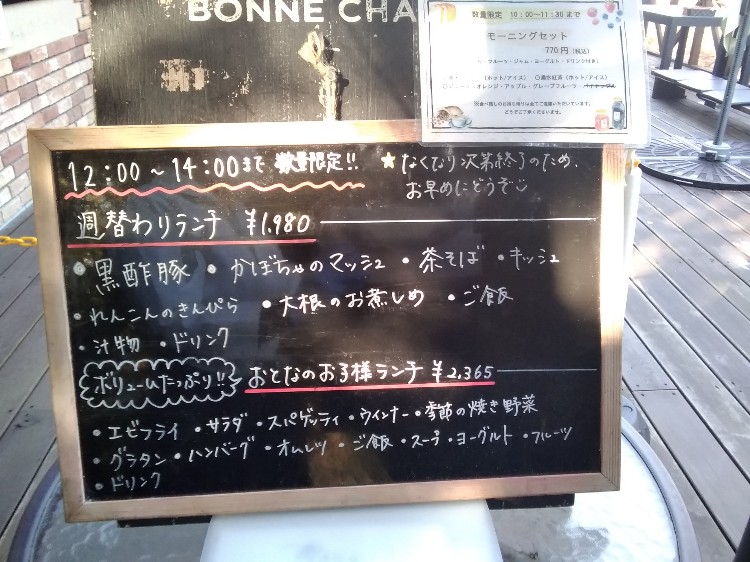 BONNE CHA
数量限定 10:00~11:30まで
モーニングセット
770円(税込)
フルーツ・ジャム・ヨーグルト・ドリンク付き)
(ホット/アイス) (ホット/アイス)
オレンジ・アップル・グレープフルーツ・
12:00~14:00まで 数量限定!!
★なくなり次第終了のため、
お早めにどうぞ
週替わりランチ ¥1,980
◎黒酢豚 ・かぼちゃのマッシュ ・茶そば ・キッシュ
・れんこんのきんぴら ・大根のお煮しめ ・ご飯
・汁物 ・ドリンク
ボリュームたっぷり!! おとなのお子様ランチ ¥2,365
・エビフライ ・サラダ ・スパゲッティ ・ウインナー ・季節の焼き野菜
・グラタン ・ハンバーグ ・オムレツ ・ご飯 ・スープ ・ヨーグルト ・フルーツ
・ドリンク